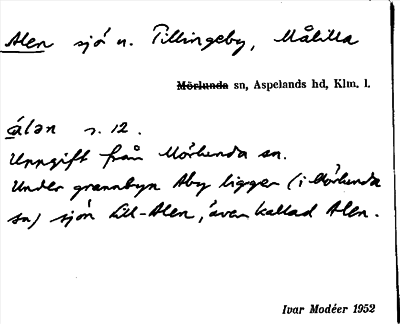 Alen sjö n. Tillingeby, Målilla
Mörlunda sn, Aspelands hd, Klm. l.
álən s. 12.
Uppgift från Mörlunda sn.
Under grannbyn Åby ligger (i Mörlunda
sn) sjön Lill-Alen, även kallad Alen.
Ivar Modéer 1952